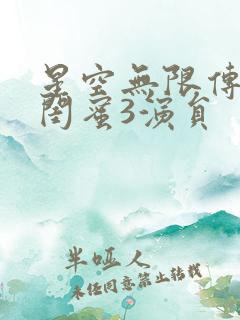 星空無限傳
閨蜜3演員
半啞人
未经同意禁止转载